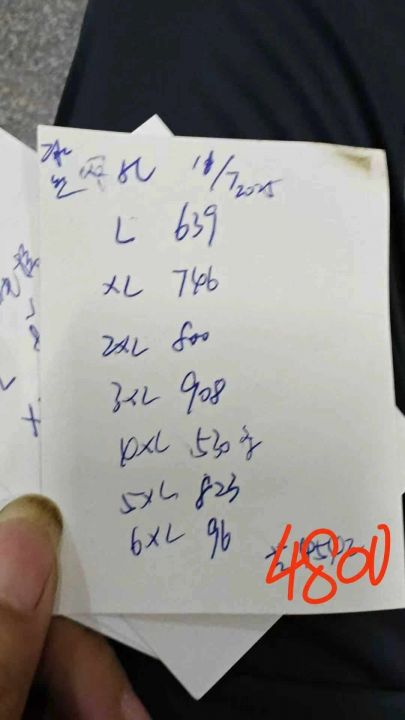 11/7 2025
L 639
XL 746
2XL 800
3XL 908
XL 530
5XL 823
6XL 96
4800